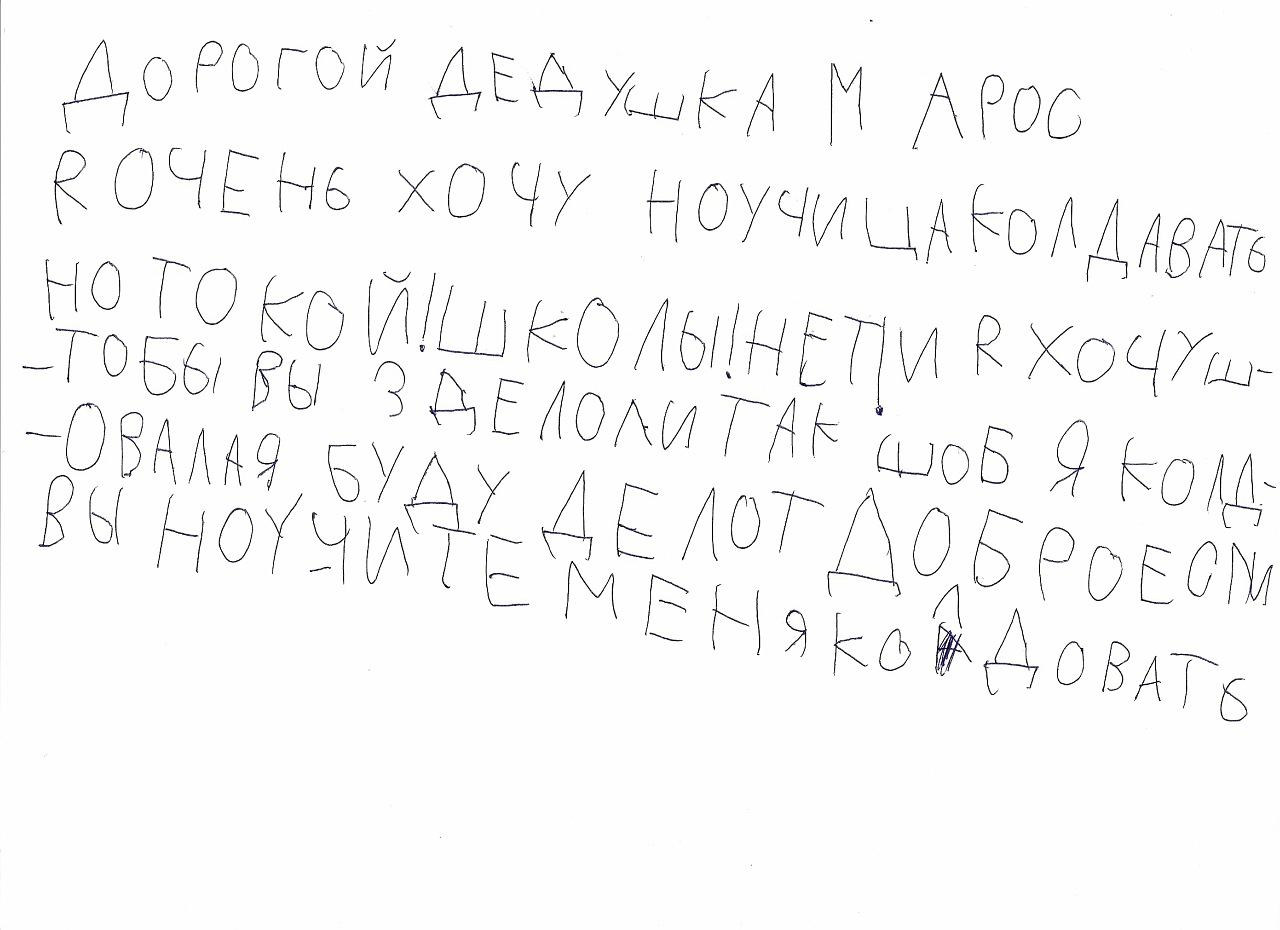 ДОРОГОЙ ДЕДУШКА МАРОС
R ОЧЕНЬ ХОЧУ НОУЧИЦА КОЛДАВАТЬ
НО ТОКОЙ!ШКОЛЫ!!НЕТ!И R ХОЧУ Ш-
-ТОБЫ ВЫ ЗДЕЛОЛИ ТАК ШОБ Я КОЛД-
-ОВАЛА Я БУДУ ДЕЛОТ ДОБРО ЕСЛИ
ВЫ НОУЧИТЕ МЕНЯ КОЛДОВАТЬ